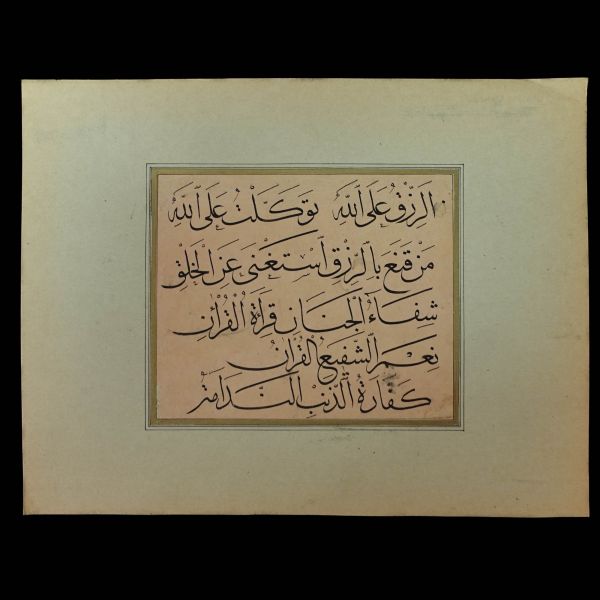 الرِّزْقُ عَلَى اللّٰهِ تَوَكَّلْتُ عَلَى اللّٰهِ
مَنْ قَنَعَ بِالرِّزْقِ اسْتَغْنَى عَنِ الْخَلْقِ
شِفَاءُ الْجَنَانِ قِرَاءَةُ الْقُرْاٰنِ
نِعْمَ الشَّفِيعُ الْقُرْاٰنُ
كَفَّارَةُ الذَّنْبِ النَّدَامَةُ